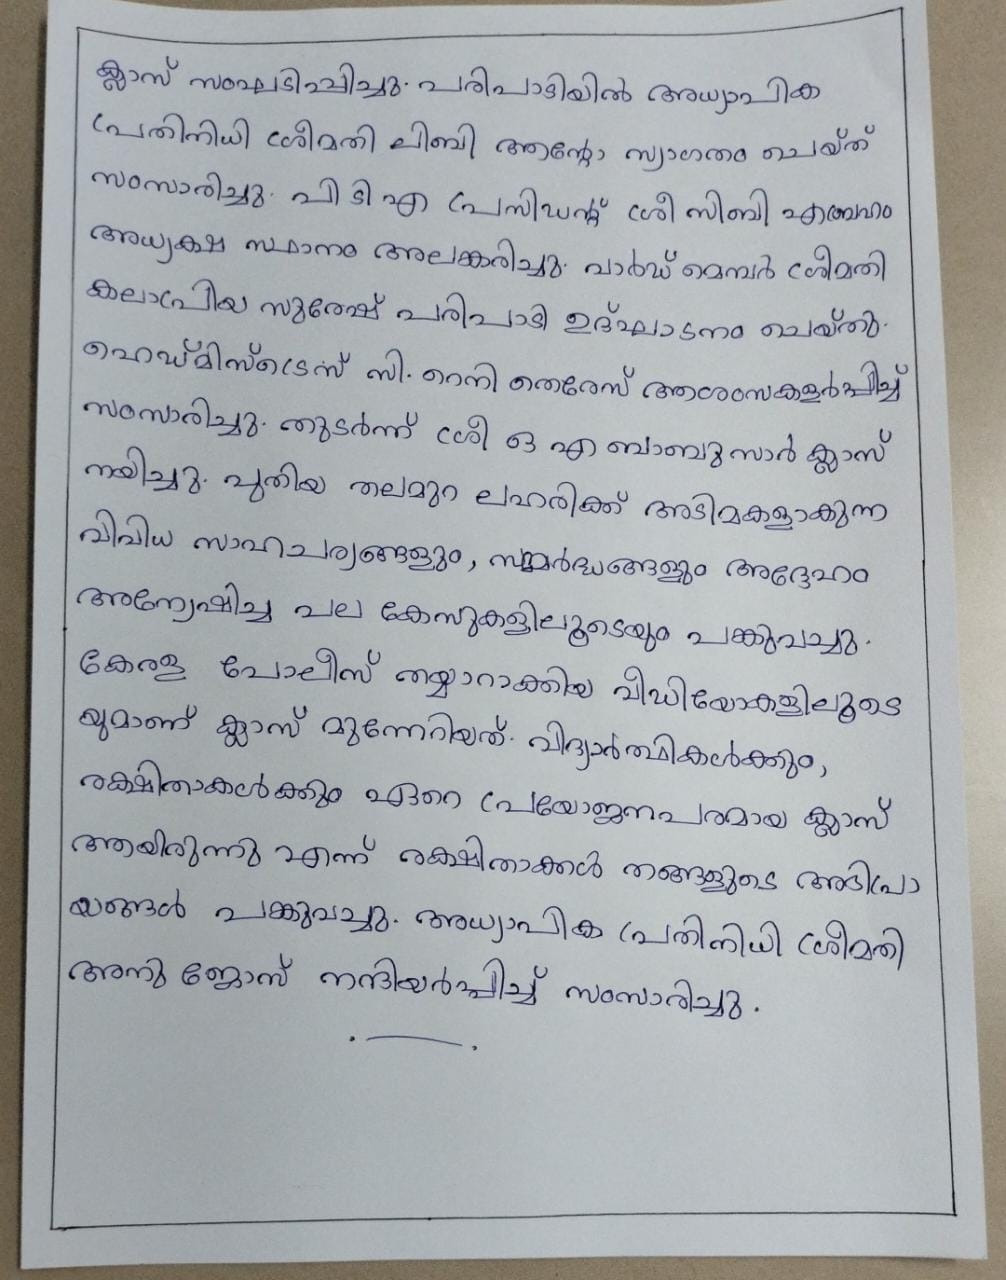 ക്ലാസ് സംഘടിപ്പിച്ചു. പരിപാടിയിൽ അധ്യാപിക
പ്രതിനിധി ശ്രീമതി ലിബി ആന്റോ സ്വാഗതം ചെയ്ത്
സംസാരിച്ചു. പി ടി എ പ്രസിഡന്റ് ശ്രീ സിബി എബ്രഹാം
അധ്യക്ഷ സ്ഥാനം അലങ്കരിച്ചു. വാർഡ് മെമ്പർ ശ്രീമതി
കലാപ്രിയ സുരേഷ് പരിപാടി ഉദ്ഘാടനം ചെയ്തു.
ഹെഡ്മിസ്ട്രെസ് സി. റെനി തെരേസ് ആശംസകളർപ്പിച്ച്
സംസാരിച്ചു. തുടർന്ന് ശ്രീ ഒ എ ബാബു സാർ ക്ലാസ്
നയിച്ചു. പുതിയ തലമുറ ലഹരിക്ക് അടിമകളാകുന്ന
വിവിധ സാഹചര്യങ്ങളും, സമ്മർദ്ധങ്ങളും അദ്ദേഹം
അന്വേഷിച്ച പല കേസുകളിലൂടെയും പങ്കുവച്ചു.
കേരള പോലീസ് തയ്യാറാക്കിയ വീഡിയോകളിലൂടെ
യുമാണ് ക്ലാസ് മുന്നേറിയത്. വിദ്യാർത്ഥികൾക്കും,
രക്ഷിതാകൾക്കും ഏറെ പ്രയോജനപരമായ ക്ലാസ്
ആയിരുന്നു എന്ന് രക്ഷിതാക്കൾ തങ്ങളുടെ അഭിപ്രാ
യങ്ങൾ പങ്കുവച്ചു. അധ്യാപിക പ്രതിനിധി ശ്രീമതി
അനു ജോസ് നന്ദിയർപ്പിച്ച് സംസാരിച്ചു.